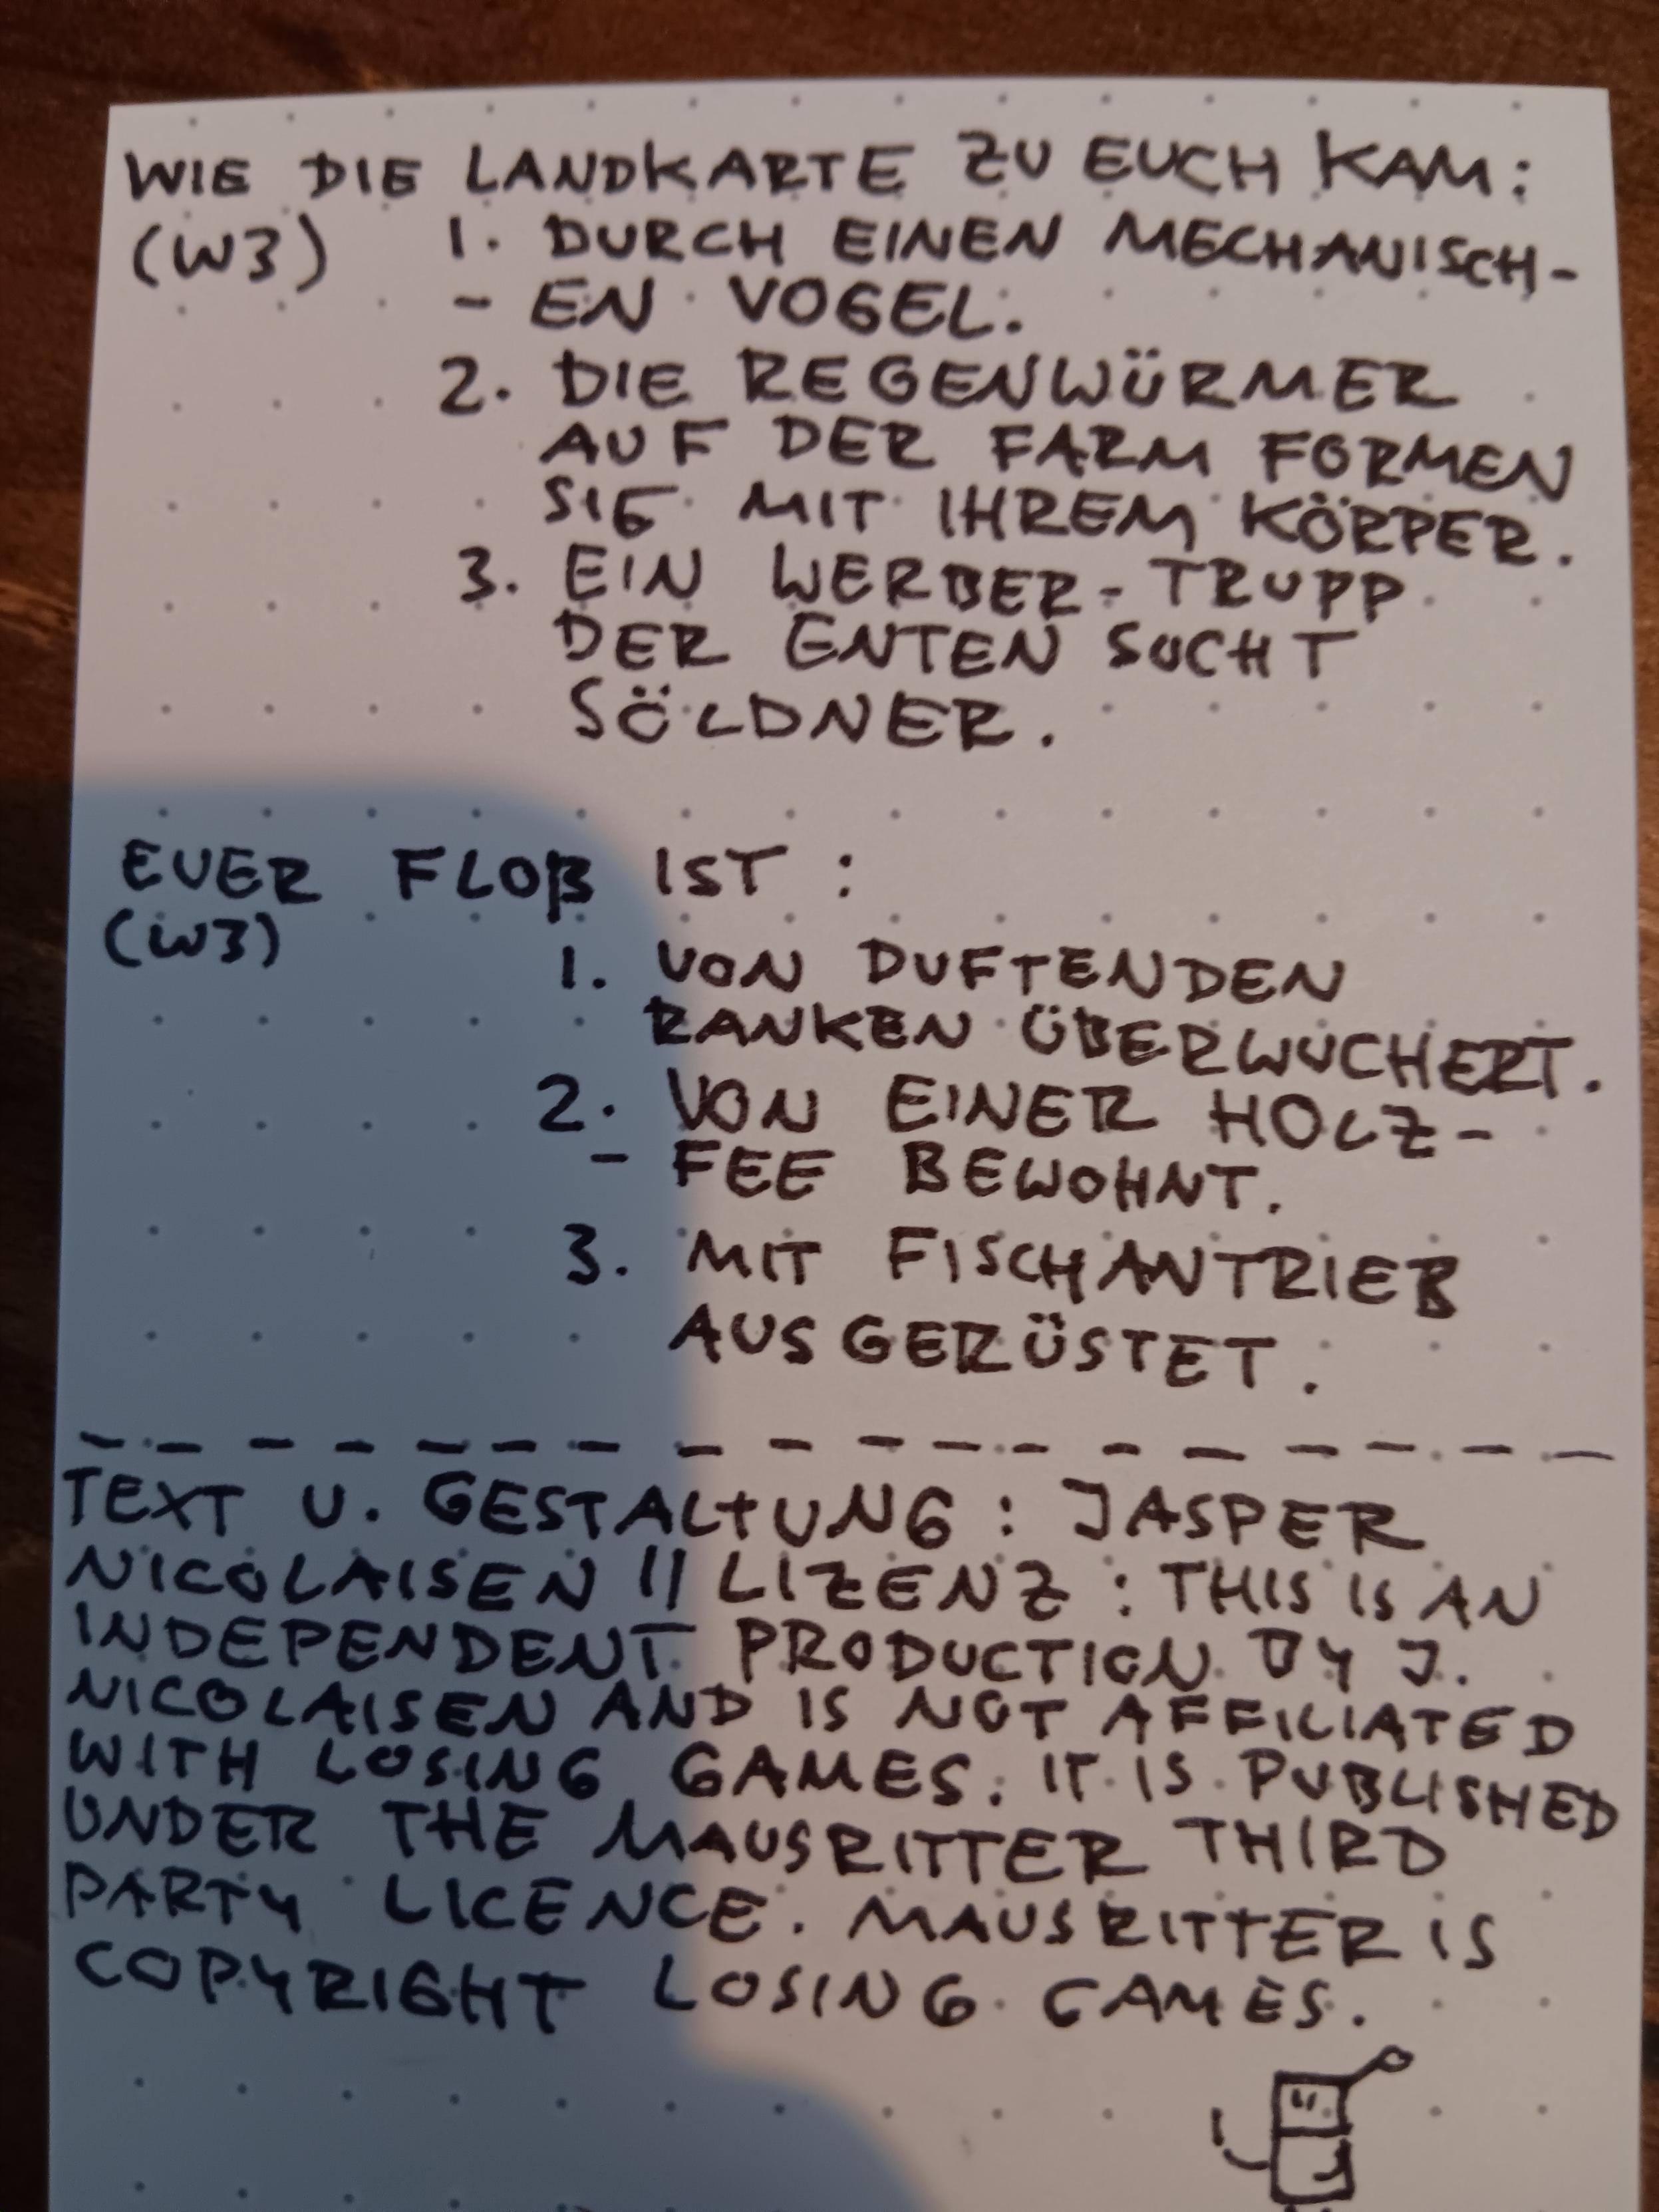 WIE DIE LANDKARTE ZU EUCH KAM:
(W3) 1. DURCH EINEN MECHANISCH-
- EN VOGEL.
2. DIE REGENWÜRMER
AUF DER FARM FORMEN
SIE MIT IHREM KÖRPER.
3. EIN WERBER-TRUPP
DER ENTEN SUCHT
SÖLDNER.
EUER FLOß IST:
(W3)
1. VON DUFTENDEN
RANKEN ÜBERWUCHERT.
2. VON EINER HOLZ-
- FEE BEWOHNT.
3. MIT FISCHANTRIEB
AUSGERÜSTET.
TEXT U. GESTALTUNG: JASPER
NICOLAISEN // LIZENZ: THIS IS AN
INDEPENDENT PRODUCTION BY J.
NICOLAISEN AND IS NOT AFFILIATED
WITH LOSING GAMES. IT IS PUBLISHED
UNDER THE MAUSRITTER THIRD
PARTY LICENCE. MAUSRITTER IS
COPYRIGHT LOSING GAMES.